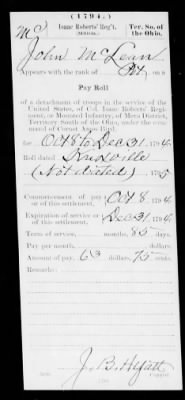 (1794.)
Mc Isaac Roberts' Reg't, Ter. So. of
Militia. the Ohio.
John McLean
Appears with the rank of Pvt. on a
Pay Roll
of a detachment of troops in the service of the
United States, of Col. Isaac Roberts' Regi-
ment, or Mounted Infantry, of Mero District,
Territory South of the Ohio, under the com-
mand of Cornet Amos Bird,
for Oct 8 to Dec 31, 1794
Roll dated Knoxville
(Not dated), 1795
Commencement of pay
or of this settlement, Oct 8, 1794
Expiration of service or
of this settlement, Dec 31, 1794
Term of service, months, 85 days.
Pay per month, dollars
Amount of pay, 63 dollars, 75 cents.
Remarks:
J. B. Hyatt
Copyist.